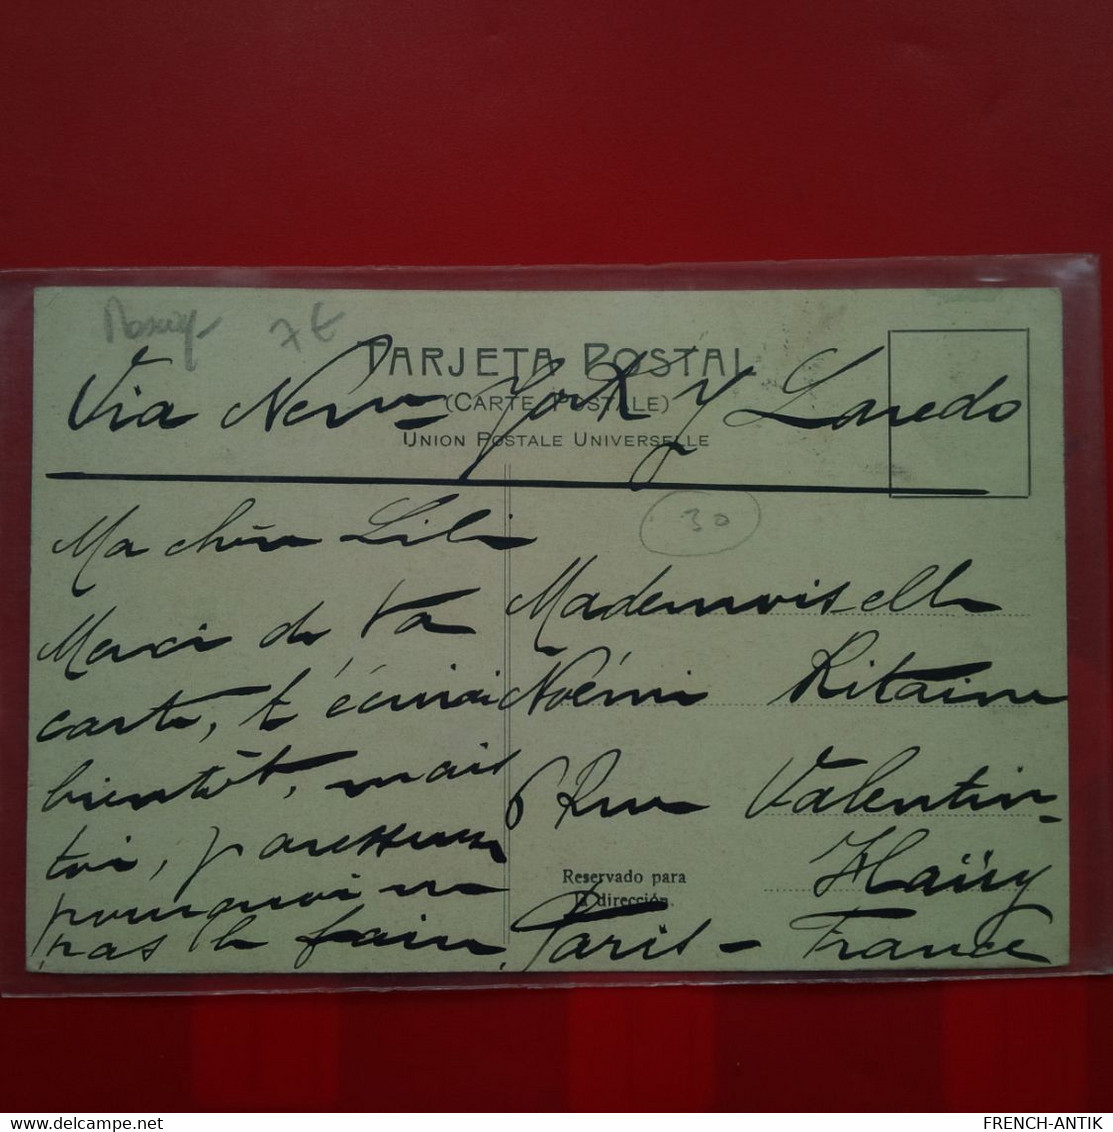 7 €
TARJETA POSTAL
Via New-York y Laredo
(CARTE POSTALE)
UNION POSTALE UNIVERSELLE
30
Ma chère Lili
Merci de ta
carte, t'écrirai
bientôt, mais
toi, paresseuse
pourquoi ne
pas le faire.
Mademoiselle
Noémi Ritaine
6 Rue Valentin-
Haüy
Reservado para
la dirección.
Paris - France
FRENCH-ANTIK